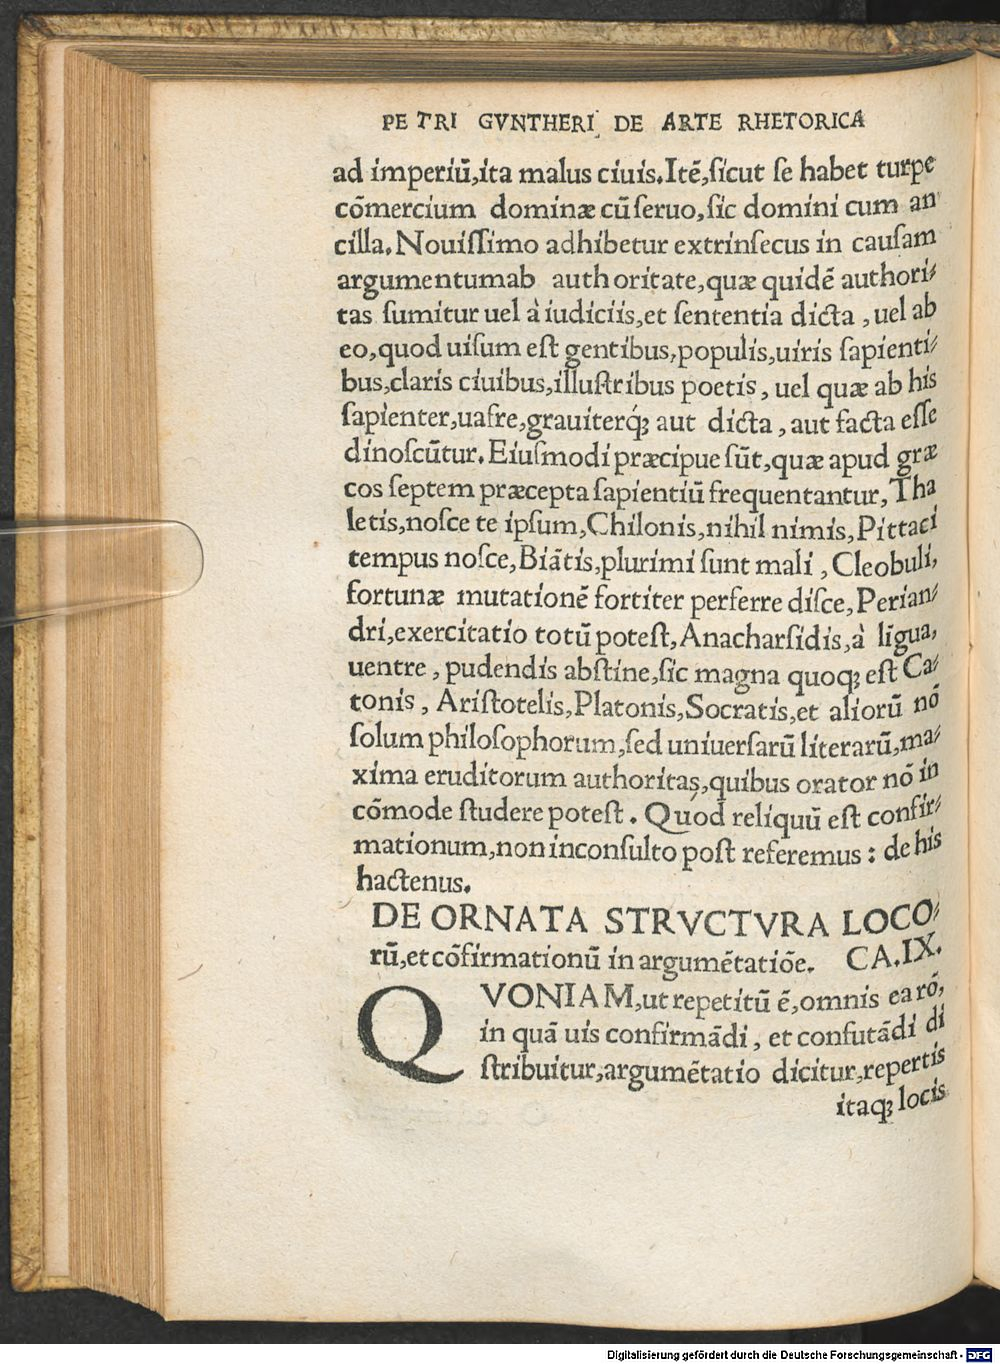 PETRI GVNTHERI DE ARTE RHETORICA
ad imperiū,ita malus ciuis.Itē,ſicut ſe habet turpe
cōmercium dominæ cū ſeruo,ſic domini cum an
cilla.Nouiſſimo adhibetur extrinſecus in cauſam
argumentumab authoritate,quæ quidē authori⸗
tas ſumitur uel à iudiciis,et ſententia dicta , uel ab
eo,quod uiſum eſt gentibus,populis,uiris ſapienti⸗
bus,claris ciuibus,illuſtribus poetis , uel quæ ab his
ſapienter,uafre,grauiterq́ꝫ aut dicta , aut facta eſſe
dinoſcūtur.Eiuſmodi præcipue ſūt,quæ apud græ
cos ſeptem præcepta ſapientiū frequentantur,Tha
letis,noſce te ipſum,Chilonis,nihil nimis,Pittaci
tempus noſce,Biātis,plurimi ſunt mali , Cleobuli,
fortunæ mutationē fortiter perferre diſce,Perian⸗
dri,exercitatio totū poteſt,Anacharſidis,à līgua,
uentre , pudendis abſtine,ſic magna quoqꝫ eſt Ca⸗
tonis , Ariſtotelis,Platonis,Socratis,et aliorū nō
ſolum philoſophorum,ſed uniuerſarū literarū,ma⸗
xima eruditorum authoritas,quibus orator nō in
cōmode ſtudere poteſt . Quod reliquū eſt confir⸗
mationum,non inconſulto poſt referemus : de his
hactenus.
DE ORNATA STRVCTVRA LOCO⸗
rū,et cōfirmationū in argumētatiōe. CA.IX.
QVONIAM,ut repetitū ē,omnis ea rō,
in quā uis confirmādi , et confutādi di
ſtribuitur,argumētatio dicitur,repertis
itaqꝫ locis
Digitalisierung gefördert durch die Deutsche Forschungsgemeinschaft - DFG